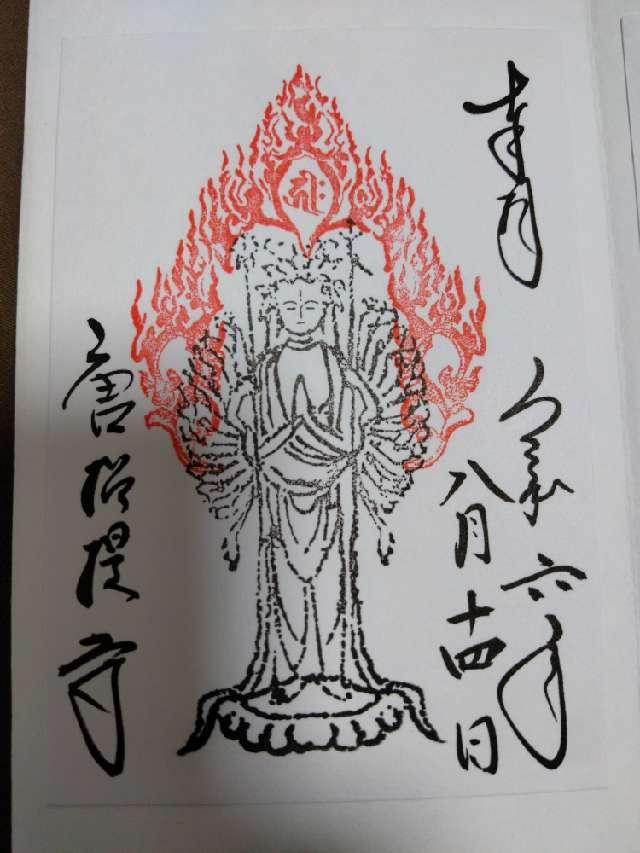 奉拝
令和六年
八月十四日
唐招提寺